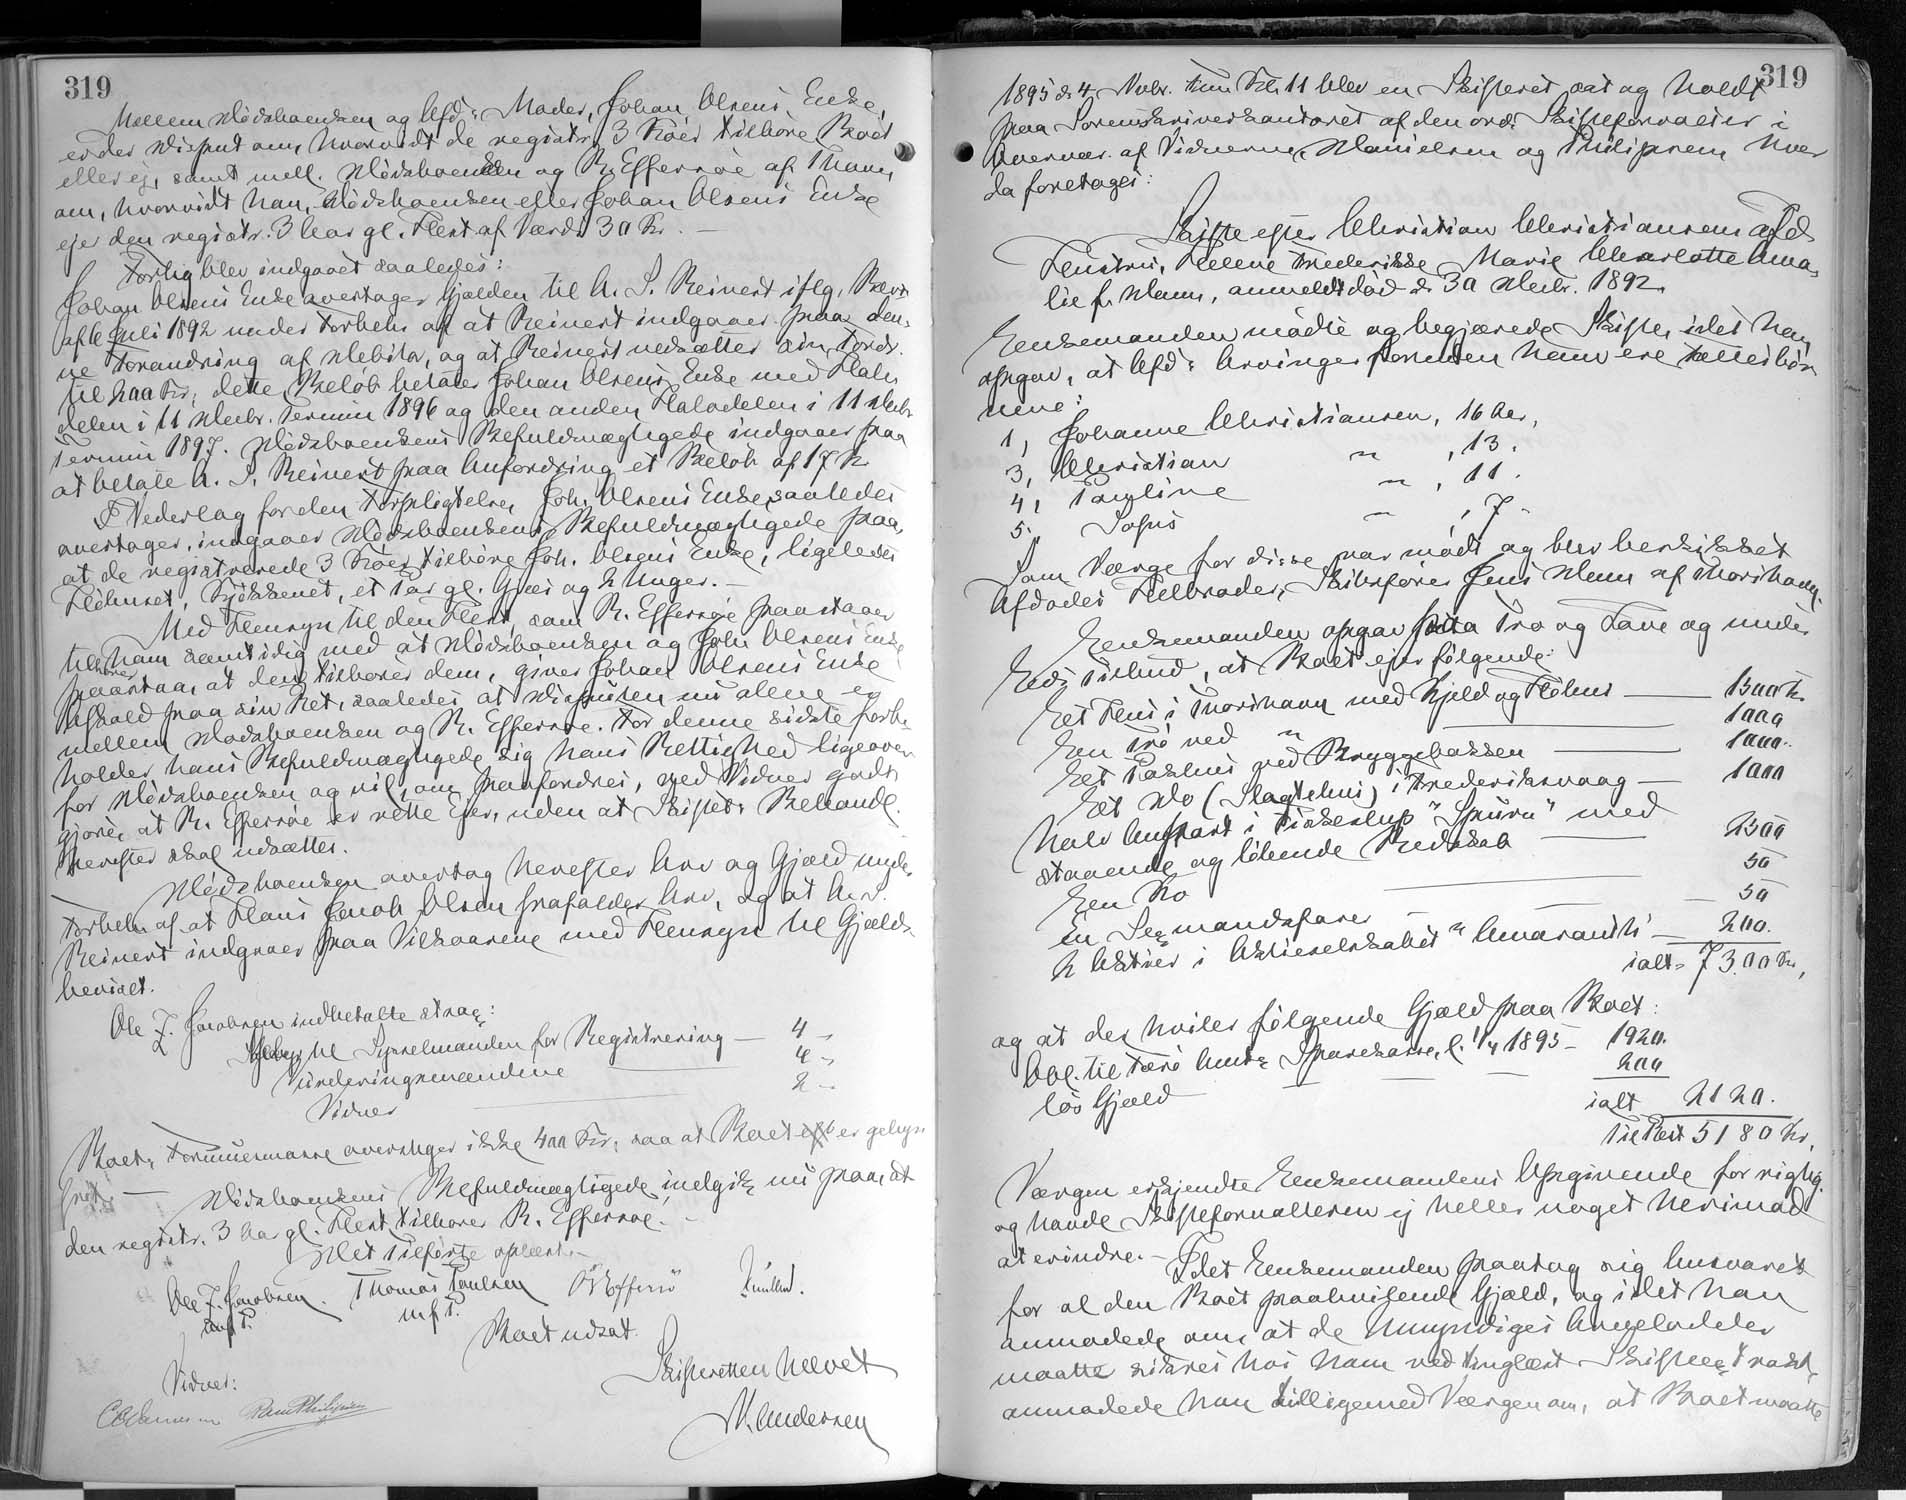 319
Mellem Mödshaensen og Afd:s Moder, Johan Olsens Enke,
er der Disput om, hvorvidt de registr. 3 Köer tilhöre Boet
eller ej, samt mell. Mödshaensen og R. Effersöe af Thavn
om, hvorvidt han, Mödshaensen eller Johan Olsens Enke
ejer den registr. 3 Aar gl. Hest af Værdi 30 Kr. —
Forlig blev indgaaet saaledes:
Johan Olsens Enke overtager Gjælden til A. S. Reinert iflg. Bevis
af 6 Juli 1892 under Forbeh. af at Reinert indgaaer paa den-
ne Forandring af Debitor, og at Reinert nedsætter sin Fordr.
til 200 Kr; dette Belöb betaler Johan Olsens Enke med Halv
delen i 11 Decbr. Termin 1896 og den anden Halvdelen i 11 Decbr
Termin 1897. Mödshaensens Befuldmægtigede indgaaer paa
at betale A. S. Reinert paa Anfordring et Belöb af 17 Kr
I Vederlag for den Forpligtelse, Joh. Olsens Enke saaledes
overtager, indgaaer Mödshaensens Befuldmægtigede paa,
at de registrerede 3 Köer tilhöre Joh. Olsens Enke, ligeledes
Höhuset, Kjökkenet, et Par gl. Gjæs og 2 Unger. —
Med Hensyn til den Hest, som R. Effersöe paastaaer
tilhörer ham samtidig med at Mödshaensen og Joh. Olsens Enke
paastaa, at den tilhörer dem, giver Johan Olsens Enke
Afkald paa sin Ret, saaledes at Disputen nu alene er
mellem Mödshaensen og R. Effersöe. For denne sidste forbe-
holder hans Befuldmægtigede sig hans Rettighed ligeover
for Mödshaensen og vil, om paafordres, ved Vidner godt
gjöre, at R. Effersöe er rette Ejer, uden at Skiftets Behandl.
herefter skal udsættes.
Mödshaensen overtog herefter Arv og Gjæld under
Forbeh. af at Hans Jacob Olsen frafalder Arv, og at A. S.
Reinert indgaaer paa Vilkaarene med Hensyn til Gjælds
beviset.
Ole J. Jacobsen indbetalte strax:
til Sysselmanden for Registrering — 4 -
Vurderingsmændene — 4 -
Vidner — 2 -
Boets Formuesmasse overstiger ikke 400 Kr, saa at Boet er gebyr
frit. — Mödshaensens Befuldmægtigede indgik nu paa, at
den registr. 3 Aar gl. Hest tilhörer R. Effersöe. —
Det Tilförte oplæst. —
Ole J. Jacobsen. Thomas Poulsen O Effersö
m f P. m f P.
Boet udsat.
Skifteretten hævet
M. Andersen
Vidner:
319
1895 d. 4 Novbr. Fm. Kl. 11 blev en Skifteret sat og holdt
paa Sorenskriverkontoret af den ord. Skifteforvalter i
Overvær. af Vidnerne Danielsen og Philipsen. Hvor
da foretoges:
Skifte efter Christian Christiansens afd.
Hustru, Helene Frederikke Marie Charlotte Ama-
lie f. Dam, anmeldt död d. 30 Decbr. 1892.
Enkemanden mödte og begjærede Skifte, idet han
opgav, at Afd:s Arvinger foruden ham ere Fællesbör
nene:
1, Johanne Christiansen, 16 Aar,
3, Christian " , 13.
4, Pauline " , 11.
5, Sofus " , 7.
Som Værge for disse var mödt og blev beskikket
Afdödes Helbroder, Skibsförer Jens Dam af Thorshavn.
Enkemanden opgav paa Tro og Love og under
Eds Tilbud, at Boet ejer fölgende:
Eet Hus i Thorshavn med Kjeld og Höhus — 1500 Kr.
Een Trö ved " — 1000
Eet Pakhus ved Bryggebakken — 1000..
Eet Do (Slagtehus) i Frederiksvaag — 1000
Halv Anpart i Fiskeslup "Spurn" med
staaende og löbende Redskab — 2500
Een Ko — 50
En Sexmandsfarer — 50
2 Aktier i Aktieselskabet "Amaranth" — 200.
ialt = 7300 Kr,
og at der hviler fölgende Gjæld paa Boet:
Obl. til Færö Amts Sparekasse, l. 1/4 1895 — 1920.
lös Gjæld — 200
ialt 2120.
Til Rest 5180 Kr,
Værgen erkjendte Enkemandens Opgivende for rigtig
og havde Skifteforvalteren ej heller noget herimod
at erindre. —
Idet Enkemanden paatog sig Ansvaret
for al den Boet paahvilende Gjæld, og idet han
anmodede om, at de Umyndiges Arvelodder
maatte sikres hos ham ved tinglæst Skifteextrakt,
anmodede han tilligemed Værgen om, at Boet maatte